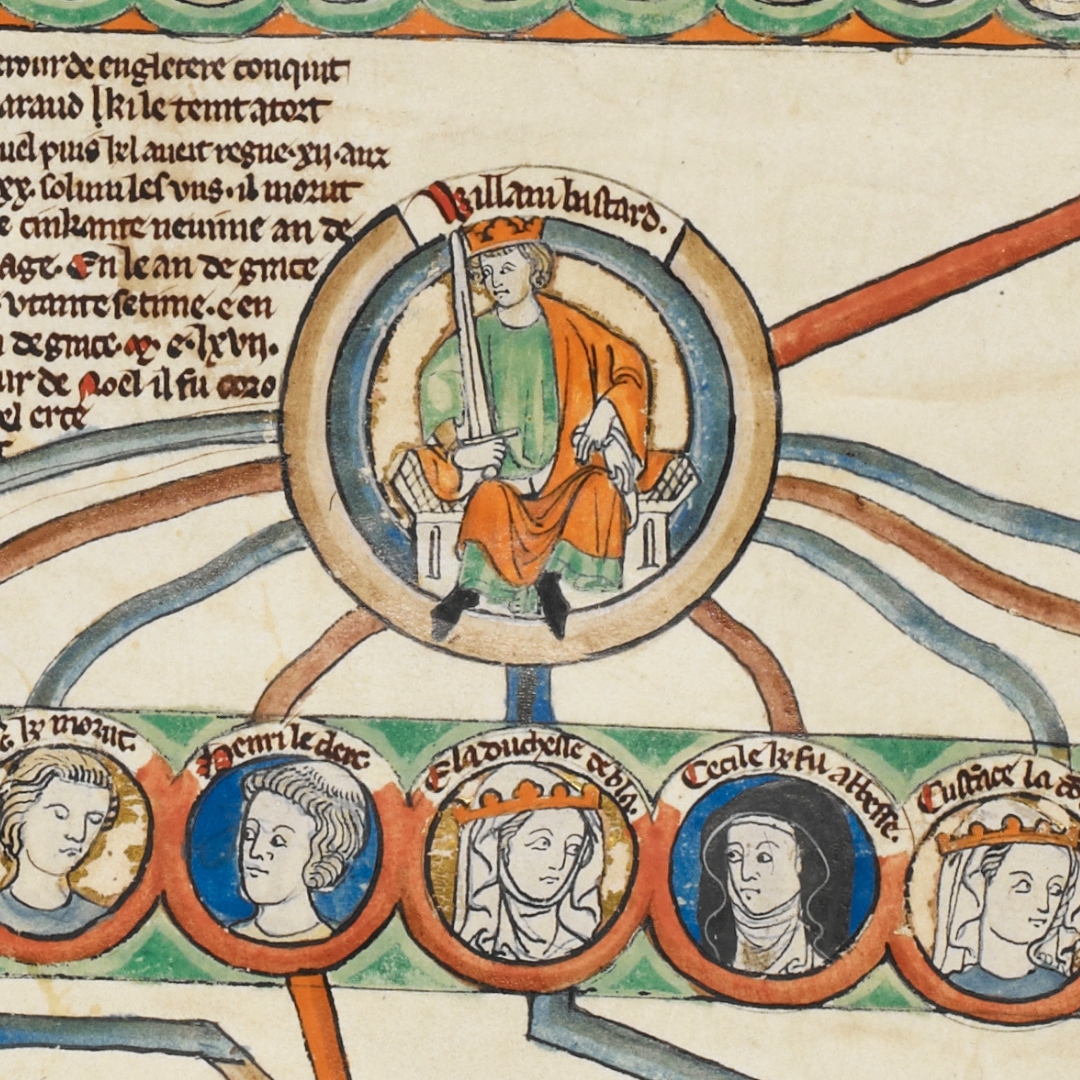 de engletere conquist
araud ki le teint a tort
puis kil aueit regne · xij · anz
xx · solum les vns · il morut
cinkante neuime an de
age · En le an de grace
vtante setime · e en
de grace · e · lxvij ·
de Noel il fu coro
Willam bastard.
ke morut.
Henri le clerc.
E la duchesse de bloi.
Cecile ke fu abbesse.
Custace la